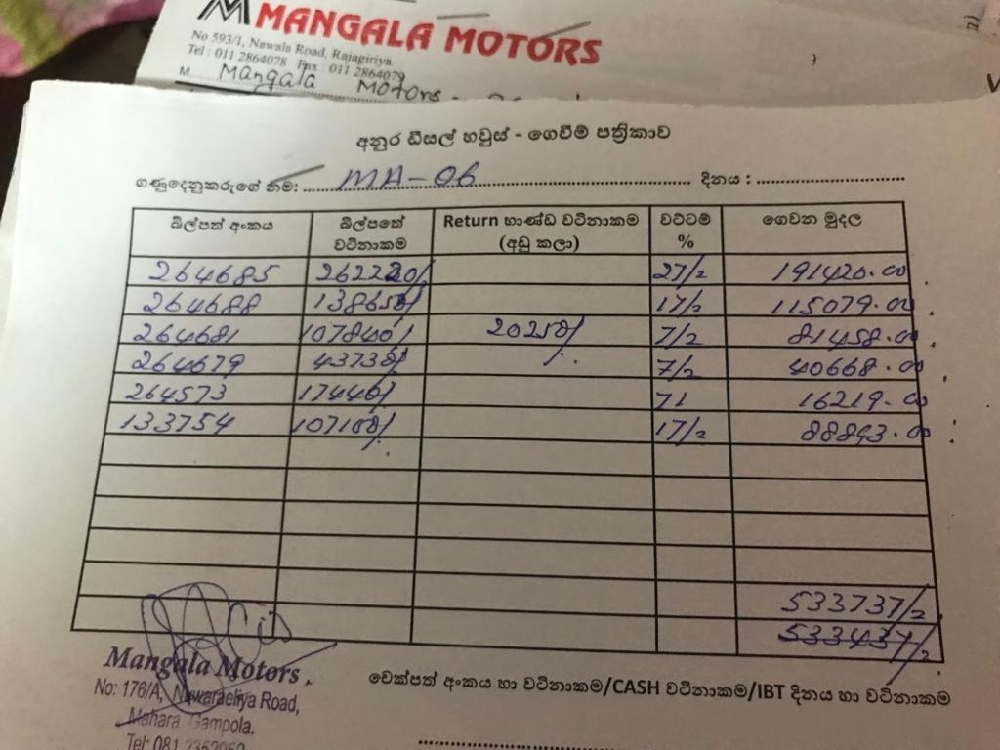 MANGALA MOTORS
No 593/1, Nawala Road, Rajagiriya.
Tel : 011 2864078 Fax : 011 2864079
M. Mangala Motors
අනුර ඩීසල් හවුස් - ගෙවීම් පත්‍රිකාව
ගණුදෙනුකරුගේ නම: MA-06 දිනය :
බිල්පත් අංකය බිල්පතේ වටිනාකම Return භාණ්ඩ වටිනාකම (අඩු කලා) වට්ටම් % ගෙවන මුදල
264685 262220/ 27/2 191420.00
264688 138650/ 17/2 115079.00
264681 107840/ 20250/ 7/2 81458.00
264679 43730/ 7/2 40668.00
264573 17440/ 71 16219.00
133754 107100/ 17/2 88893.00
533737/2
533437/2
Mangala Motors
No: 176/A, Nuwaraeliya Road,
Mahara Gampola.
Tel: 081
චෙක්පත් අංකය හා වටිනාකම/CASH වටිනාකම/IBT දිනය හා වටිනාකම